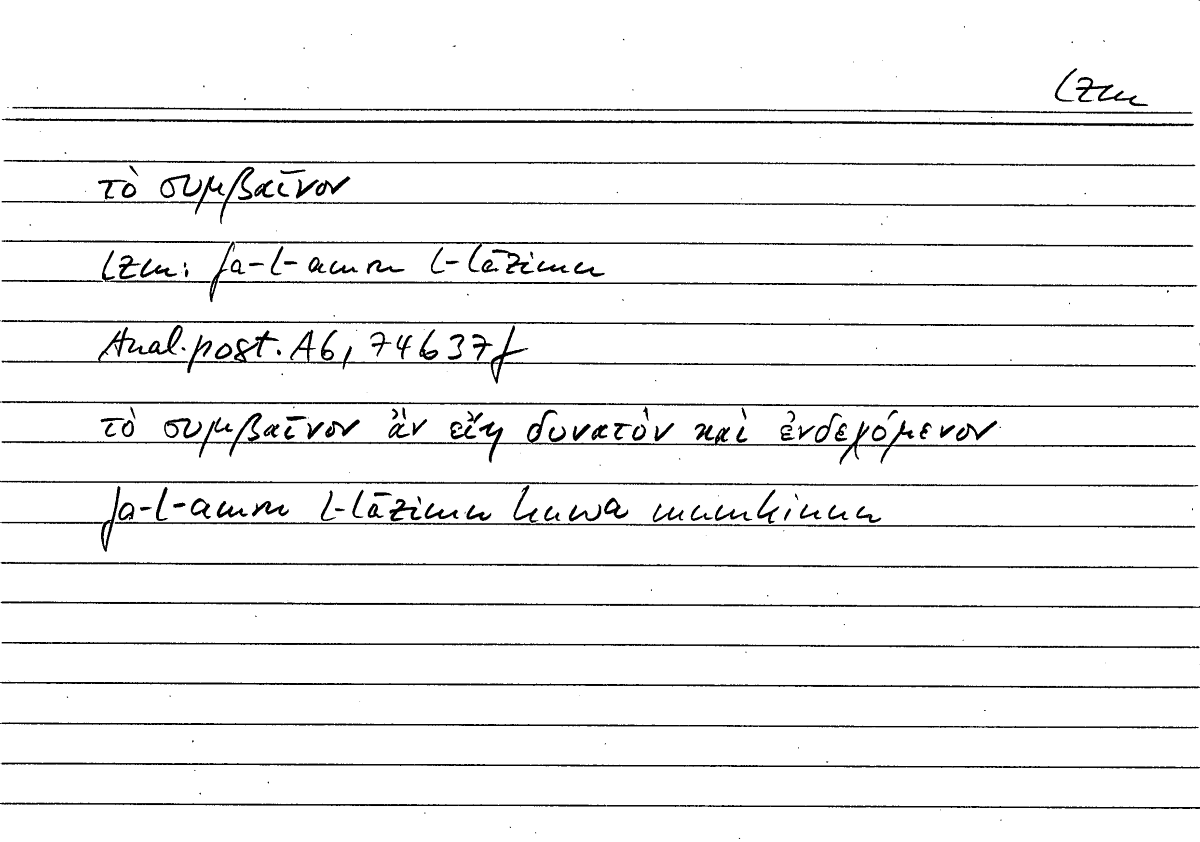 lzm
τὸ συμβαῖνον
lzm: fa-l-amru l-lāzimu
Anal. post. A6, 74b37f
τὸ συμβαῖνον ἂν εἴη δυνατὸν καὶ ἐνδεχόμενον
fa-l-amru l-lāzimu huwa mumkinun